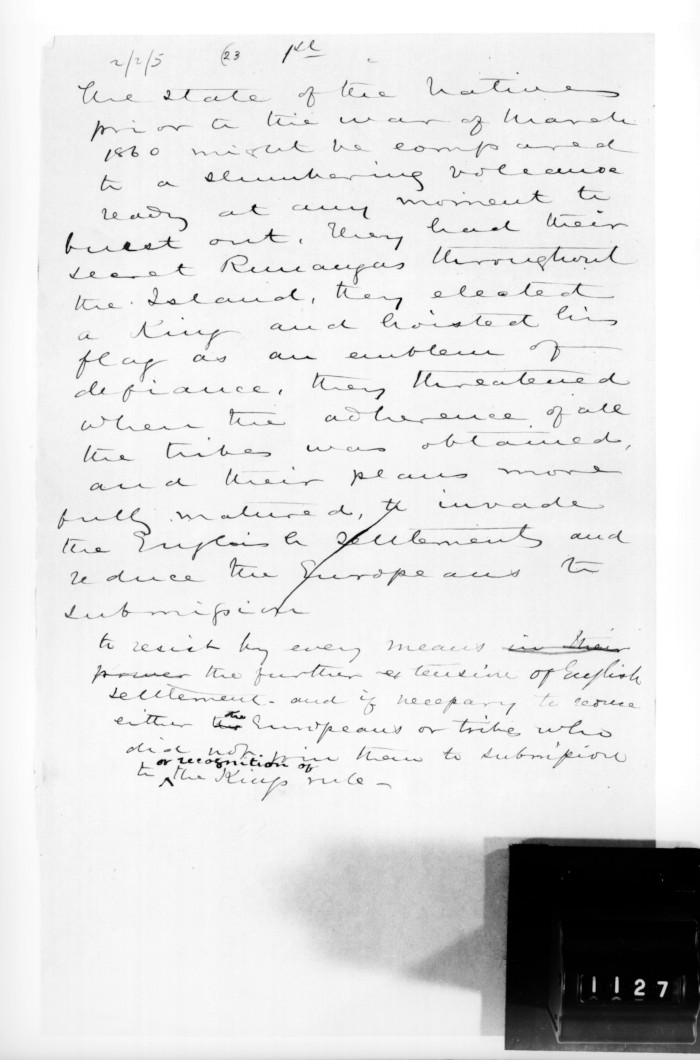 2/2/5 (23 1st
The state of the Natives
prior to the war of March
1860 might be compared
to a slumbering volcanoe
ready at any moment to
burst out. They had their
secret Runangas throughout
the Island, they elected
a King and hoisted his
flag as an emblem of
defiance, they threatened
when the adherence of all
the tribes was obtained,
and their plans more
fully matured, to invade
the English settlements and
reduce the Europeans to
submission
to resist by every means in their
power the further extension of English
settlement - and if necessary to
either the the Europeans or tribes who
did not join them to submission
or recognition of
to ^ the Kings rule -
1127